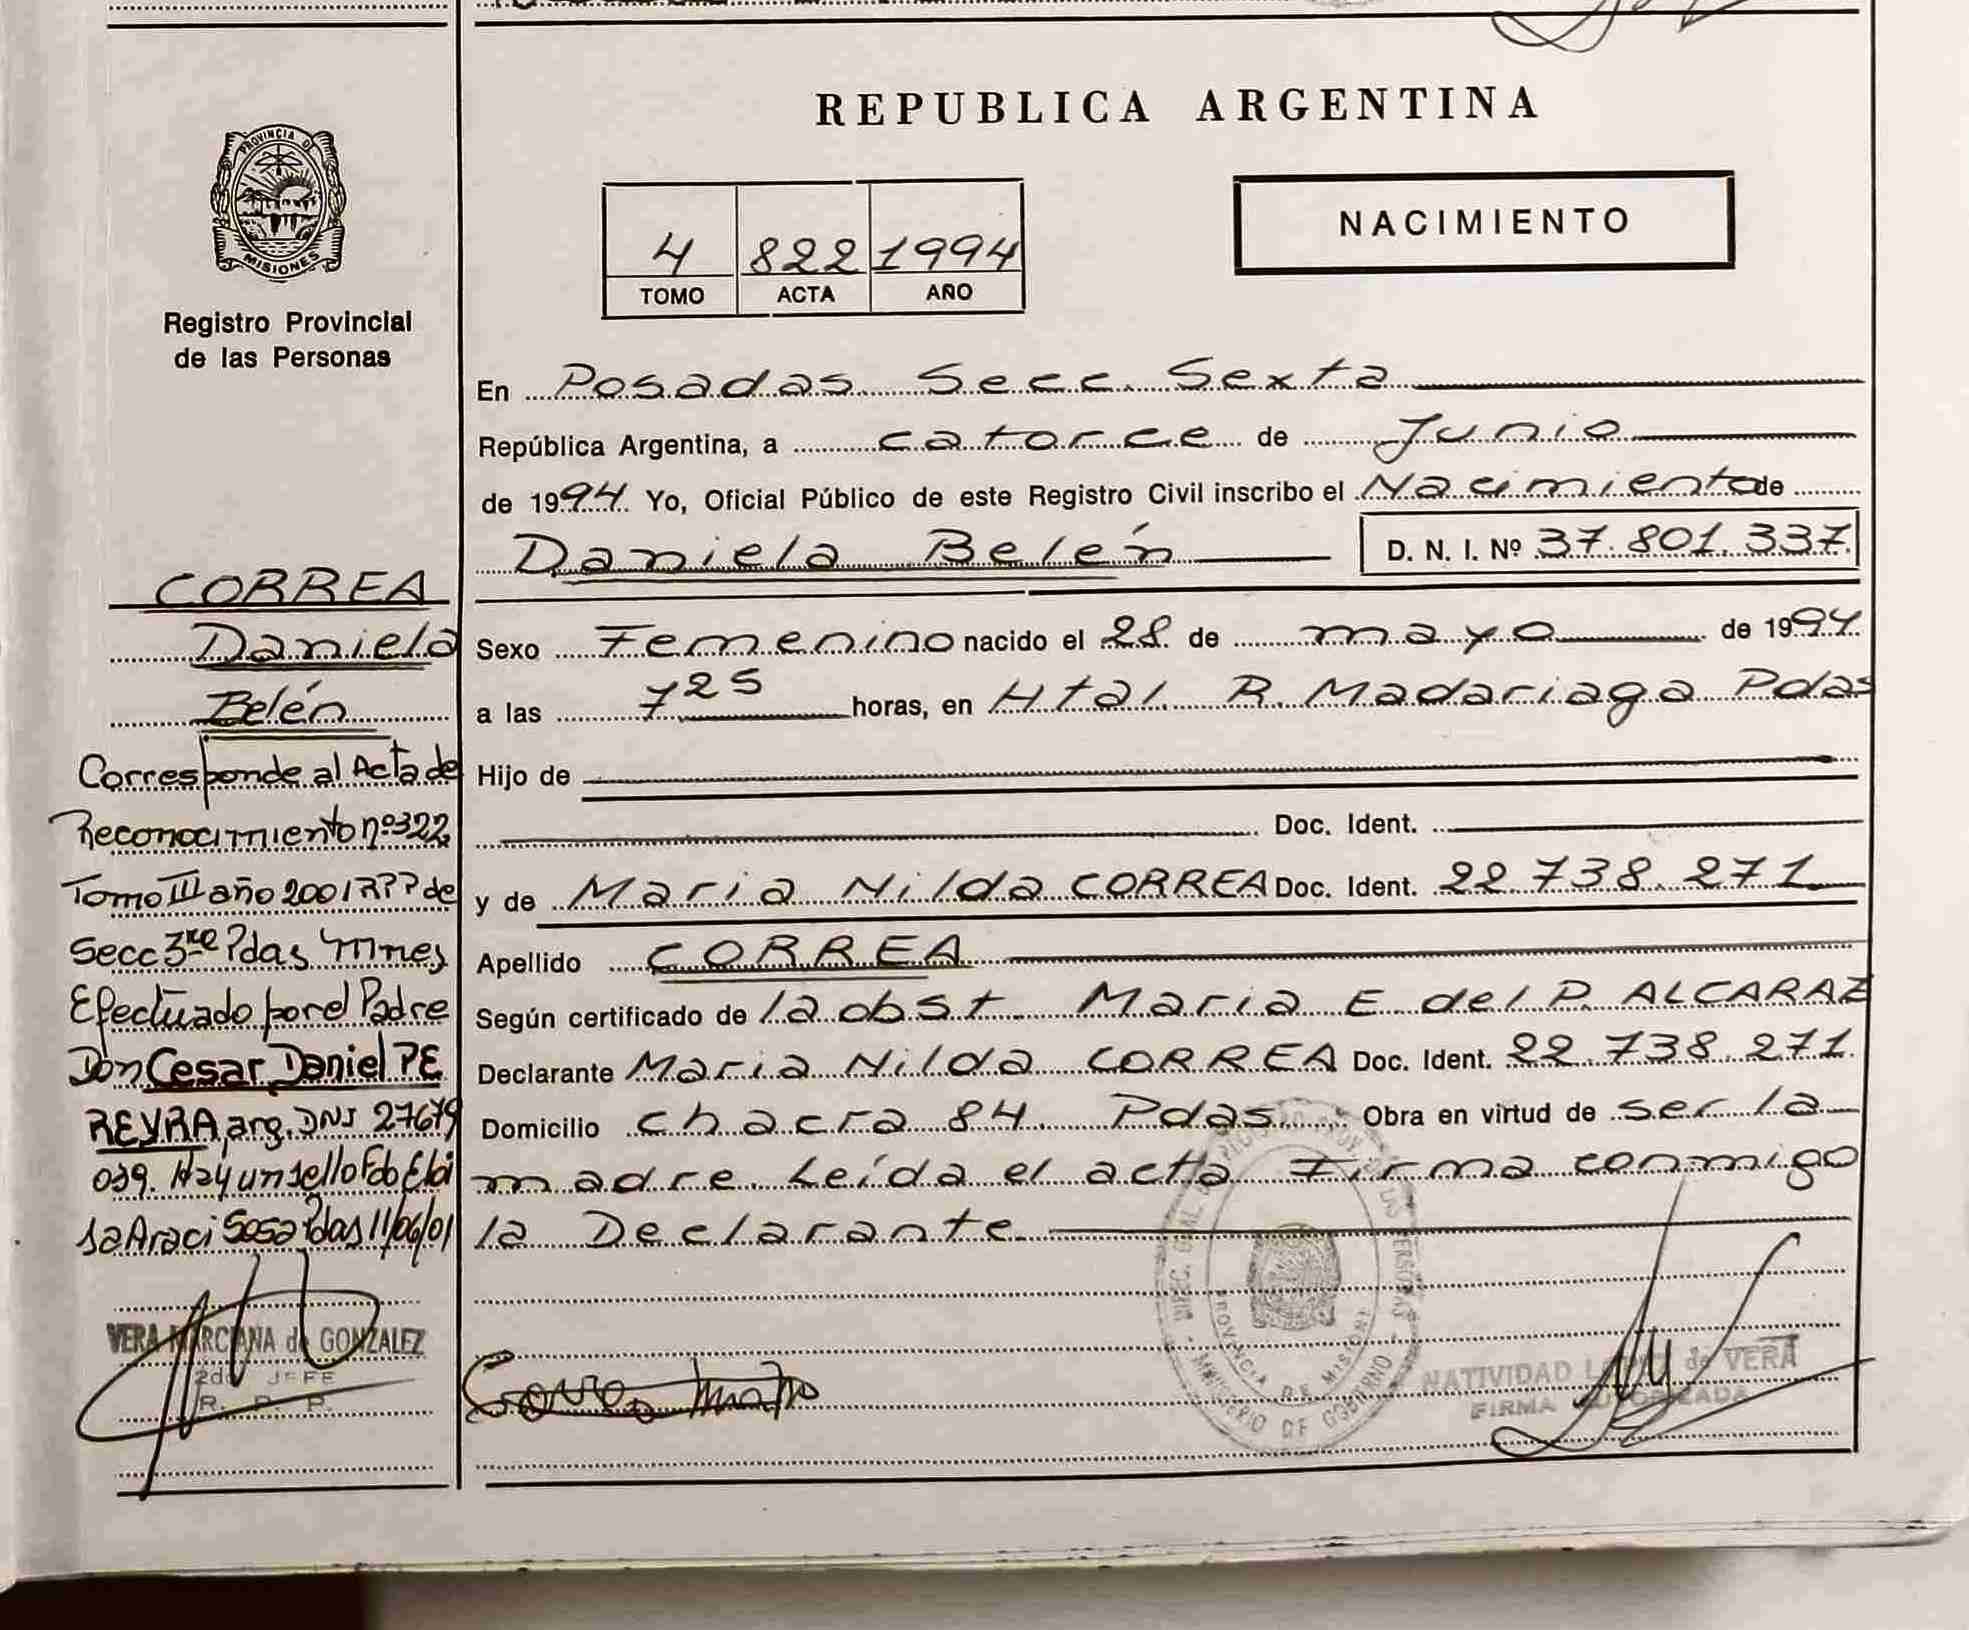 PROVINCIA DE
MISIONES
Registro Provincial
de las Personas
CORREA
Daniela
Belén
Corresponde al Acta de
Reconocimiento nº 322
Tomo III año 2001 R?? de
Secc 3ra Pdas Mnes
Efectuado por el Padre
Don Cesar Daniel PE
REYRA, arg. DNI 27679
039. Hay un sello Fdo Elbi
sa Araci Sosa Pdas 11/06/01
VERA MARCIANA de GONZALEZ
2do JEFE
R. P. P.
REPUBLICA ARGENTINA
4 822 1994
TOMO ACTA AÑO
NACIMIENTO
En Posadas Secc. Sexta
República Argentina, a catorce de Junio
de 1994. Yo, Oficial Público de este Registro Civil inscribo el Nacimiento de
Daniela Belén D. N. I. Nº 37.801.337.
Sexo Femenino nacido el 28 de mayo de 1994.
a las 7 25 horas, en Htal. R. Madariaga Pdas
Hijo de
Doc. Ident.
y de Maria Nilda CORREA Doc. Ident. 22.738.271.
Apellido CORREA
Según certificado de la obst. Maria E. del P. ALCARAZ
Declarante Maria Nilda CORREA Doc. Ident. 22.738.271.
Domicilio chacra 84. Pdas. Obra en virtud de ser la
madre. Leída el acta Firma conmigo
la Declarante.
PROVINCIA DE MISIONES
MINISTERIO DE GOBIERNO
Correa
NATIVIDAD LOPEZ de VERA
FIRMA AUTORIZADA